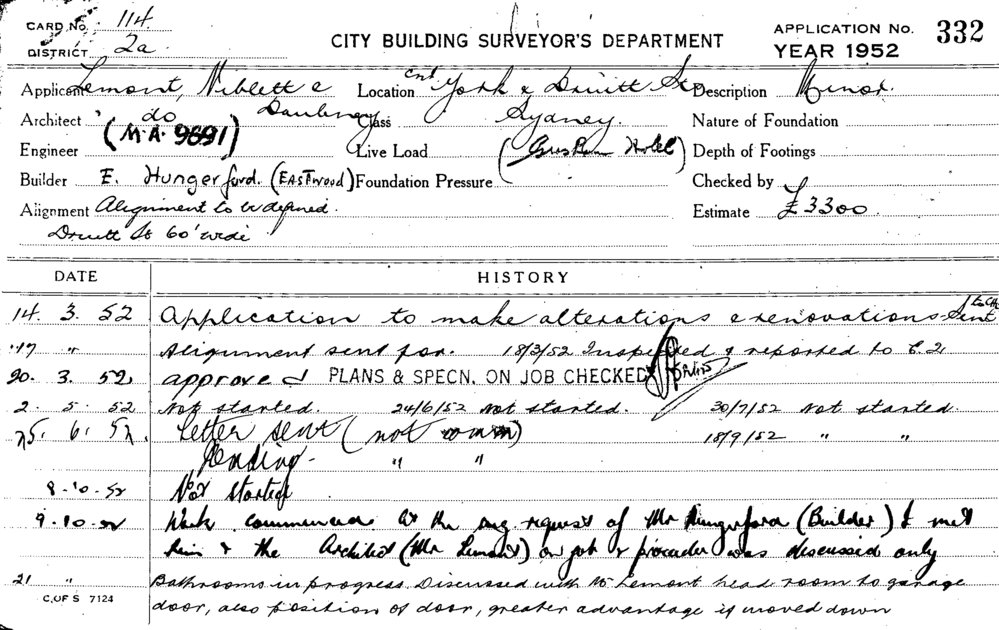 CARD No. 114
DISTRICT 2a
CITY BUILDING SURVEYOR'S DEPARTMENT
APPLICATION No. 332
YEAR 1952
Applicant Lemont, Niblett & Location cnr York & Druitt St. Description Minor.
Architect do Daubney Class Sydney. Nature of Foundation
Engineer (M.A. 9691) Live Load (Gresham Hotel) Depth of Footings
Builder E. Hungerford. (EASTWOOD) Foundation Pressure Checked by
Alignment Alignment to be defined. Estimate £3300
Druitt St 60' wide
DATE HISTORY
14. 3. 52 Application to make alterations & renovations Sent
17 " Alignment sent for. 18/3/52 Inspected & reported to
20. 3. 52 approved PLANS & SPECN. ON JOB CHECKED
2. 5. 52 Not started. 24/6/52 Not started. 30/7/52 Not started.
25. 6. 52. Letter sent (not 18/9/52 " "
Pending - " "
8-10-52 Not started
9-10-52 Work commenced At the request of Mr Hungerford (Builder) I met
him & the Architect (Mr Lemont) on job & procedure was discussed only
21 " Bathrooms in progress. Discussed with Mr Lemont head room to garage
door, also position of door, greater advantage if moved down
C. OF S 7124